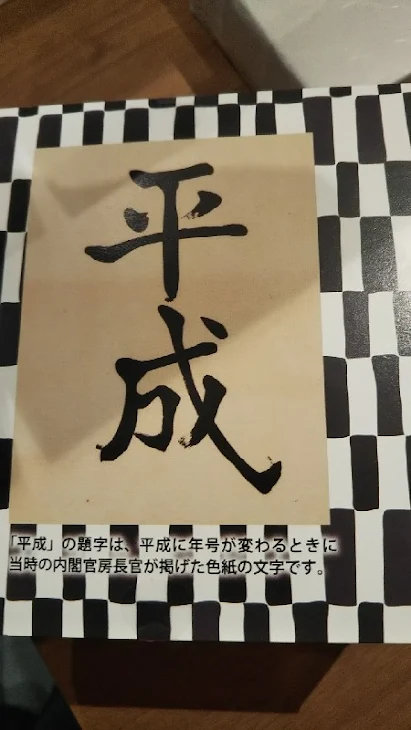 平成
「平成」の題字は、平成に年号が変わるときに
当時の内閣官房長官が掲げた色紙の文字です。